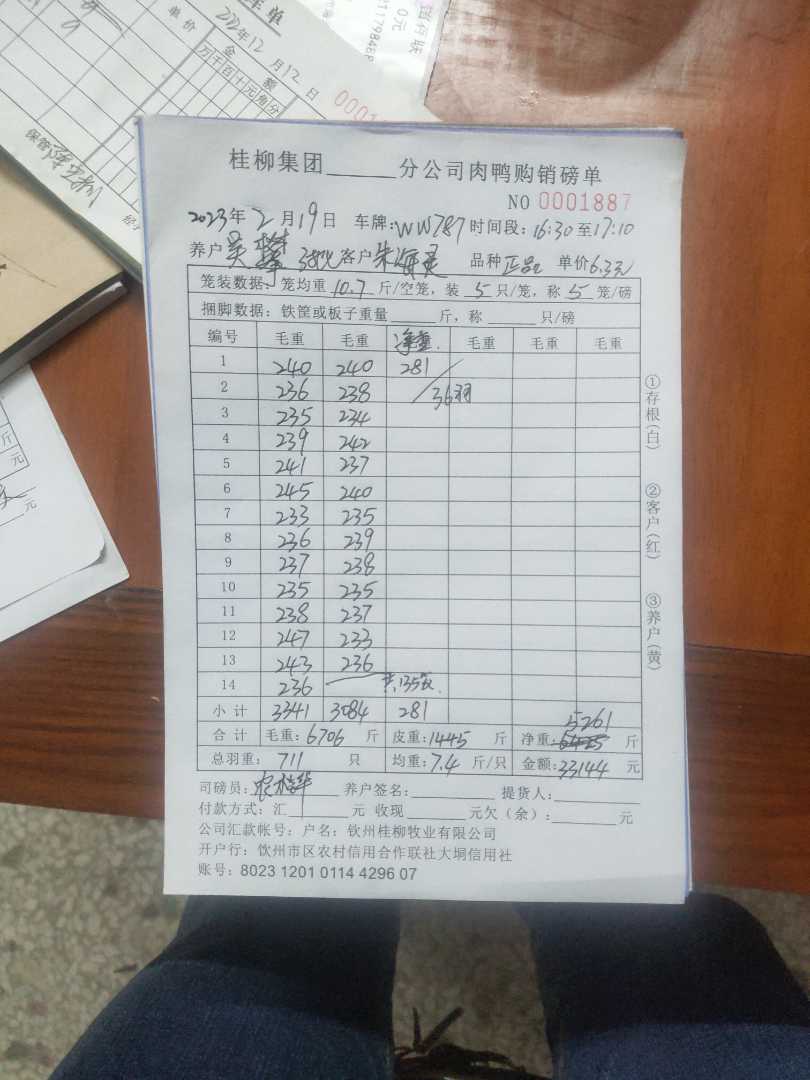 单
2022年12月12日
单价
金额
万千百十元角分
0001
保管
桂柳集团______分公司肉鸭购销磅单
NO 0001887
2023年2月19日 车牌:WW787 时间段:16:30至17:10
养户 吴 客户朱海灵 品种 正品 单价6.3元
笼装数据:笼均重 10.7 斤/空笼,装 5 只/笼,称 5 笼/磅
捆脚数据:铁筐或板子重量______斤,称______只/磅
编号 毛重 毛重 净重 毛重 毛重 毛重
1 240 240 281
2 236 238 36羽
3 235 234
4 239 242
5 241 237
6 245 240
7 233 235
8 236 239
9 237 238
10 235 235
11 238 237
12 247 233
13 243 236
14 236 共135笼
小计 3341 3084 281
5261
合计 毛重:6706 斤 皮重:1445 斤 净重: 斤
总羽重:711 只 均重:7.4 斤/只 金额:33144 元
司磅员: 养户签名:______ 提货人:______
付款方式:汇______元 收现______元欠(余):______元
公司汇款帐号:户名:钦州桂柳牧业有限公司
开户行:钦州市区农村信用合作联社大垌信用社
账号:8023 1201 0114 4296 07
①存根(白)
②客户(红)
③养户(黄)
斤
元
元